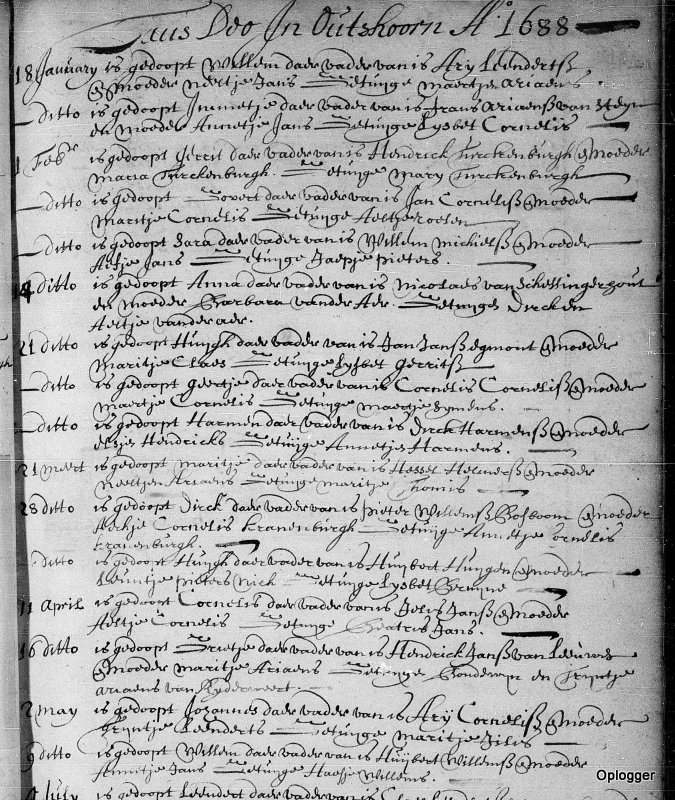 Laus Deo In Outshoorn Aº 1688
18 January is gedoopt Willem daer vader van is Ary Leendertsz
& moeder Neeltje Jans Getuijge Maertje Ariaens
ditto is gedoopt Immetje daer vader van is frans Ariaensz van
en moeder Annetje Jans Getuijge Lysbet Cornelis
1 Febr is gedoopt Gerrit daer vader van is Hendrick Turckenburgh & moeder
Maria Turckenburgh Getuijge Mary Turckenburgh
ditto is gedoopt Govert daer vader van is Jan Cornelisz & moeder
Maritje Cornelis Getuijge Aeltje roelen
ditto is gedoopt Sara daer vader van is Willem Michielsz & moeder
Aeltje Jans Getuijge Jaepje pieters.
14 ditto is gedoopt Anna daer vader van is Nicolaes van Schellingerhout
en moeder Barbara vander Aer. Getuijges Dirck en
Aeltje vander aer.
21 ditto is gedoopt Huijgh daer vader van is Jan Jansz Egmont & moeder
Maritje Claes Getuijge Lysbet Gerrits
ditto is gedoopt Geertje daer vader van is Cornelis Cornelisz & moeder
Maertje Cornelis Getuijge Maertje Symens.
ditto is gedoopt Harmen daer vader van is Dirck Harmensz & moeder
Elsje Hendricks Getuijge Annetje Harmens.
21 Meert is gedoopt Maritje daer vader van is Hessel Helmersz & moeder
Neeltjen Ariaens Getuijge Maritje Tomis
28 ditto is gedoopt Dirck daer vader van is pieter Willemsz Bosboom & moeder
Aeltje Cornelis Kranenburgh Getuijge Annetje Cornelis
Kranenburgh.
ditto is gedoopt Huijgh daer vader van is Huijbert Huijgen & moeder
Leuntje pieters Getuijge Lysbet Bruijne
11 April is gedoopt Cornelis daer vader van is Jelis Jansz & moeder
Aeltje Cornelis Getuijge Beatris Jans.
16 ditto is gedoopt Grietje daer vader van is Hendrick Jansz van Leeuwe
& moeder Maritje Ariaens Getuijge en Trijntje
ariaens van
2 may is gedoopt Johannes daer vader van is Arÿ Cornelisz & moeder
Trijntje Leenderts Getuijge Maritje Jilis
9 ditto is gedoopt Willem daer vader van is Huijbert Willemsz & moeder
Annetje Jans Getuijge Haesje Willems.
4 July is gedoopt Leendert daer vader van is
Oplogger